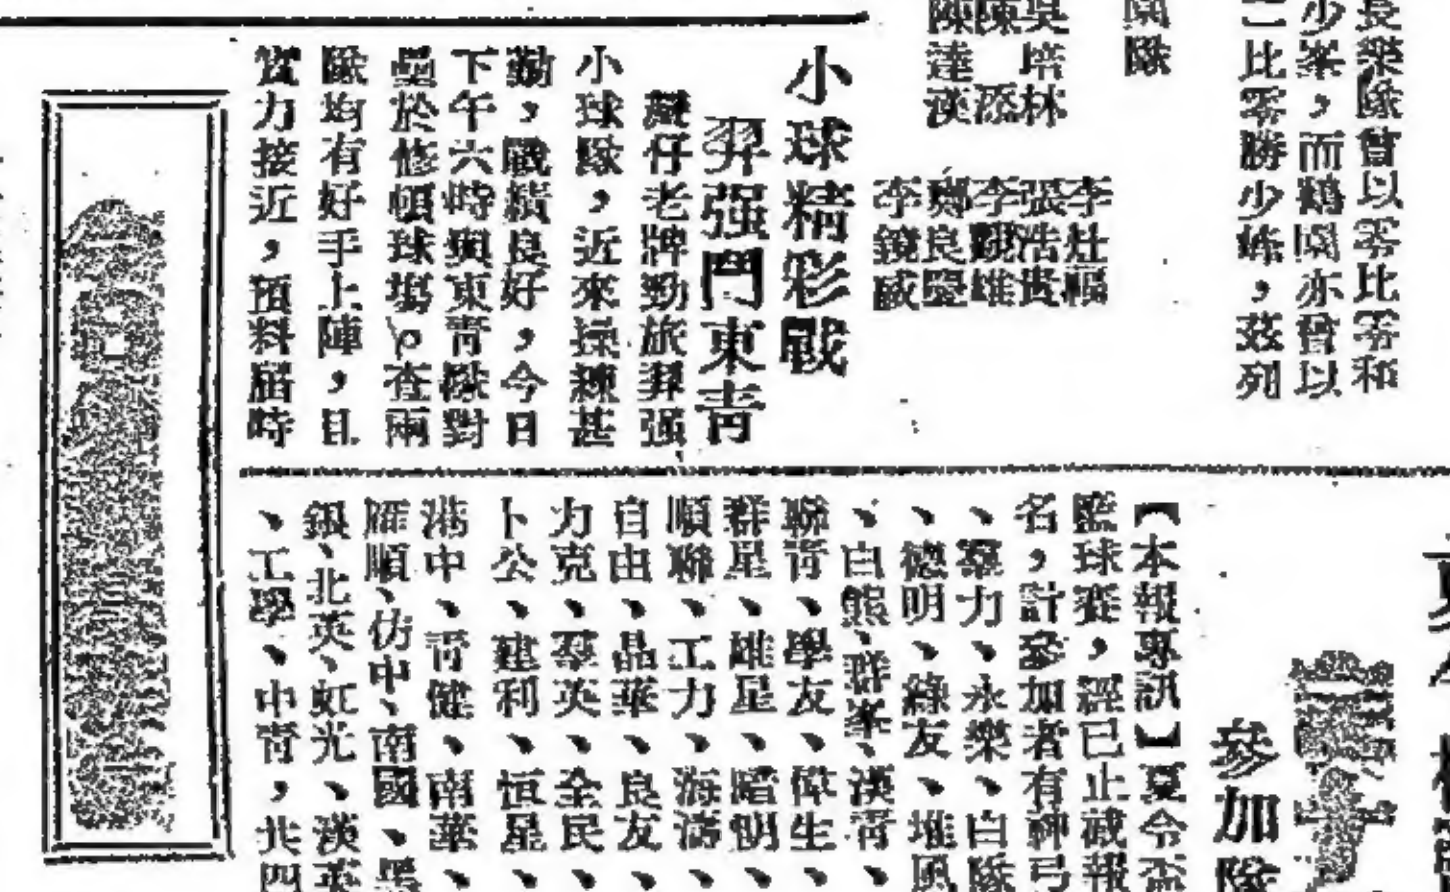 良樂隊曾以零比零和
少峯，而鶴園亦曾以
二比零勝少峰，茲列
園隊
吳培林
陳添
陳達漢
李灶福
張浩貴
李觀雄
鄭良鑒
李鏡威
小球精彩戰
羿强鬥東青
仔老牌勁旅羿强
小球隊，近來操練甚
勤，戰績良好，今日
下午六時與東青隊對
壘於修頓球塲，查兩
隊均有好手上陣，且
實力接近，預料屆時
參加隊
【本報專訊】夏令盃
籃球賽，經已止截報
名，計參加者有神弓
、羣力、永樂、白隊
、德明、綠友、堆風
、白熊、群峯、漢青
聯青、學友、偉生、
群星、雄星、暗明、
順聯、工力、海濤、
自由、晶華、良友、
力克、羣英、全民、
卜公、建利、恒星、
港中、青健、南華、
羅順、仿中、南國、黑
銀、北英、虹光、漢英
、工學、中青，共四